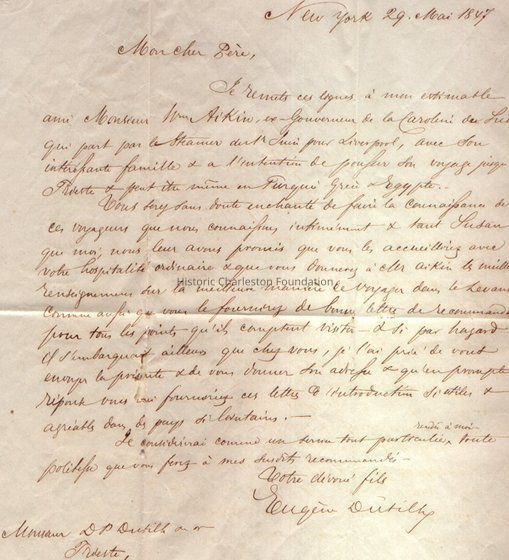 New York 29. Mai 1847
Mon cher Père,
Je remets ces lignes à mon estimable
ami Monsieur Wm Aikin, ex-Gouverneur de la Caroline du Sud
qui part par le Steamer du 1r Juin pour Liverpool, avec son
intéressante famille & a l'intention de pousser son voyage jusqu'
Trieste & peut être même en Turquie Grèce & Egypte.-
Vous serez sans doute enchanté de faire la connaissance de
ces voyageurs que nous connaissons intimement & tant Susan
que moi, nous leur avons promis que vous les accueilliriez avec
votre hospitalité ordinaire & que vous donnerez à Mr Aikin les meilleurs
renseignemens sur la meilleure manière de voyager dans le Levant
Comme aussi que vous le fournirez de bonnes lettres de recommand
pour tous les points qu'ils comptent visiter - & si par hazard
il s'embarquait ailleurs que chez vous, je l'ai prié de vous
envoyer la présente & de vous donner son adresse & qu'en prompte
réponse vous lui fourniriez ces lettres d'introduction si utiles &
agréables dans les pays si lointains.-
rendu à moi
Je considérerai comme un service tout particulier toute
politesse que vous ferez à mes susdits recommandés-
Votre dévoué fils
Eugène Dutilh
Monsieur DP Dutilh
Trieste,
Historic Charleston Foundation